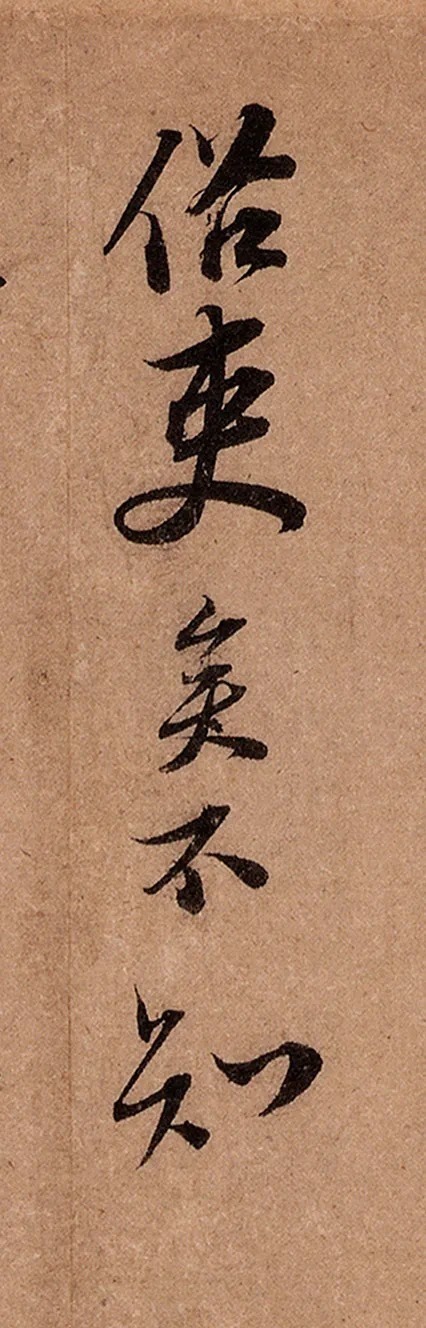 俗吏矣不知